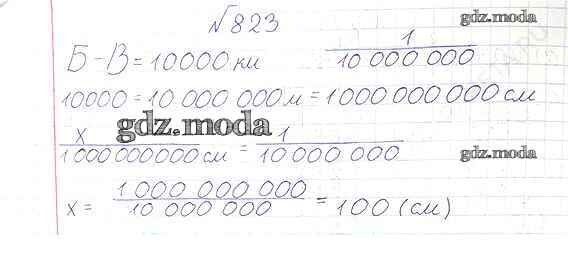 №823
gdz.moda
Б-В=10000 км 1/10 000 000
10000=10 000 000 м=1000 000 000 см
gdz.moda
x/1 000 000 000 см = 1/10 000 000
gdz.moda
x = 1 000 000 000/10 000 000 = 100 (см)